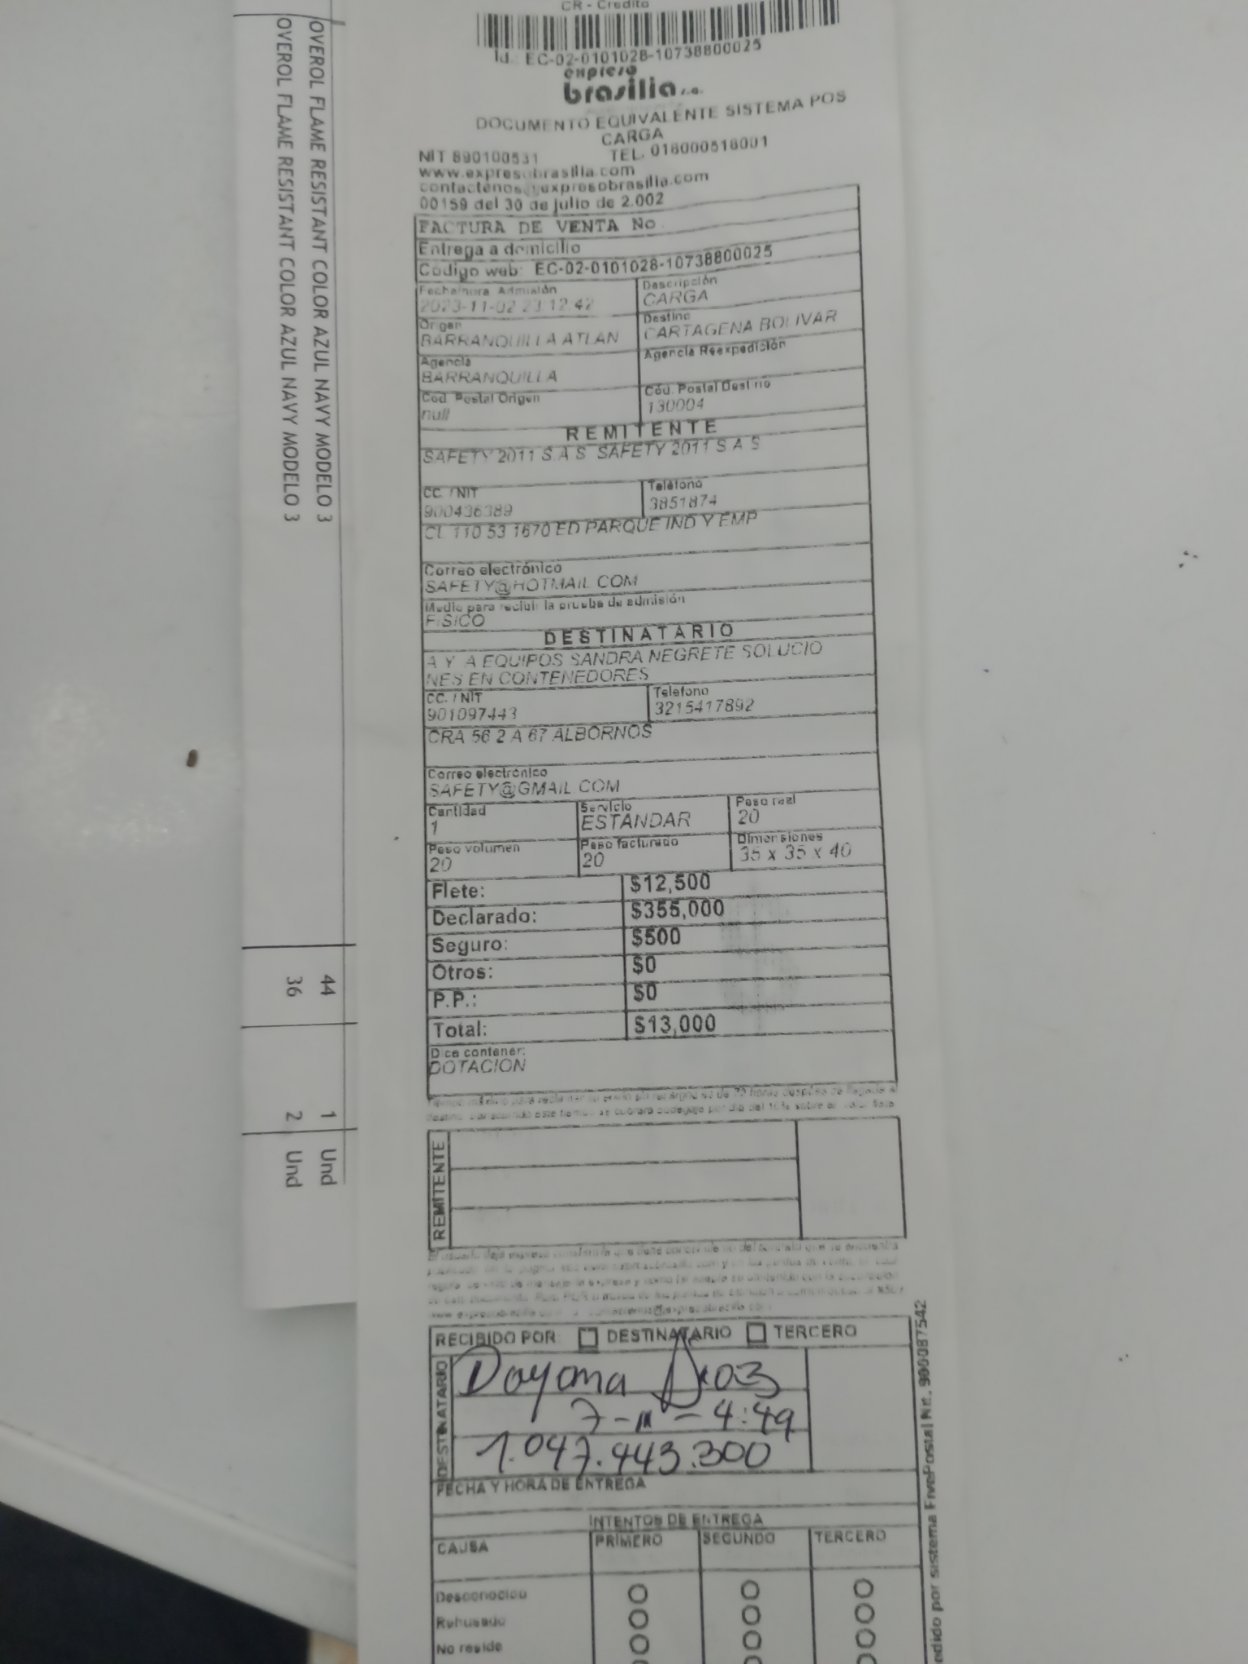 CR - Credito
Id.: EC-02-0101028-10738800025
expreso
brasilia s.a.
DOCUMENTO EQUIVALENTE SISTEMA POS
CARGA
NIT 890100531 TEL. 018000518001
www.expresobrasilia.com
contactenos@expresobrasilia.com
00159 del 30 de julio de 2.002
FACTURA DE VENTA No
Entrega a domicilio
Codigo web: EC-02-0101028-10738800025
Fecha/hora Admisión
2023-11-02 23:12:42
Descripción
CARGA
Origen
BARRANQUILLA ATLAN
Destino
CARTAGENA BOLIVAR
Agencia
BARRANQUILLA
Agencia Reexpedición
Cod. Postal Origen
null
Cod. Postal Destino
130004
REMITENTE
SAFETY 2011 S.A.S SAFETY 2011 S A S
CC. / NIT
900436389
Teléfono
3851874
CL 110 53 1670 ED PARQUE IND Y EMP
Correo electrónico
SAFETY@HOTMAIL.COM
Medio para recibir la prueba de admisión
FISICO
DESTINATARIO
A Y A EQUIPOS SANDRA NEGRETE SOLUCIO
NES EN CONTENEDORES
CC. / NIT
901097443
Telefono
3215417892
CRA 56 2 A 67 ALBORNOS
Correo electrónico
SAFETY@GMAIL.COM
Cantidad
1
Servicio
ESTANDAR
Peso real
20
Peso volumen
20
Peso facturado
20
Dimensiones
35 x 35 x 40
Flete: $12,500
Declarado: $355,000
Seguro: $500
Otros: $0
P.P.: $0
Total: $13,000
Dice contener:
DOTACION
REMITENTE
RECIBIDO POR DESTINATARIO TERCERO
DESTINATARIO
Dayana
4:49
1.047.443.300
FECHA Y HORA DE ENTREGA
INTENTOS DE ENTREGA
CAUSA PRIMERO SEGUNDO TERCERO
Desconocido
Rehusado
No reside
edido por sistema FivePostal Nit. 900087542
OVEROL FLAME RESISTANT COLOR AZUL NAVY MODELO 3 44 1 Und
OVEROL FLAME RESISTANT COLOR AZUL NAVY MODELO 3 36 2 Und